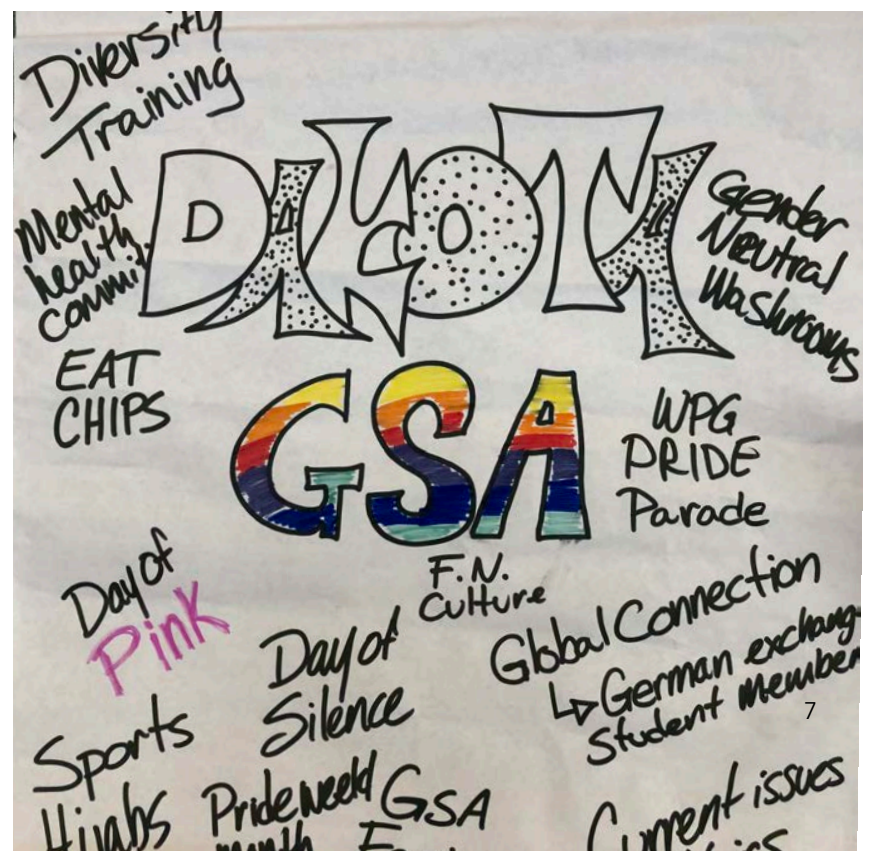 Diversity
Training
DAKOTA
Mental
health
commit
Gender
Neutral
Washrooms
EAT
CHIPS
GSA
WPG
PRIDE
Parade
F.N.
Culture
Day of
Pink
Day of
Silence
Global Connection
↳ German exchang
Student Member
7
Sports
Hijabs
Pride week/
month
GSA
Current issues